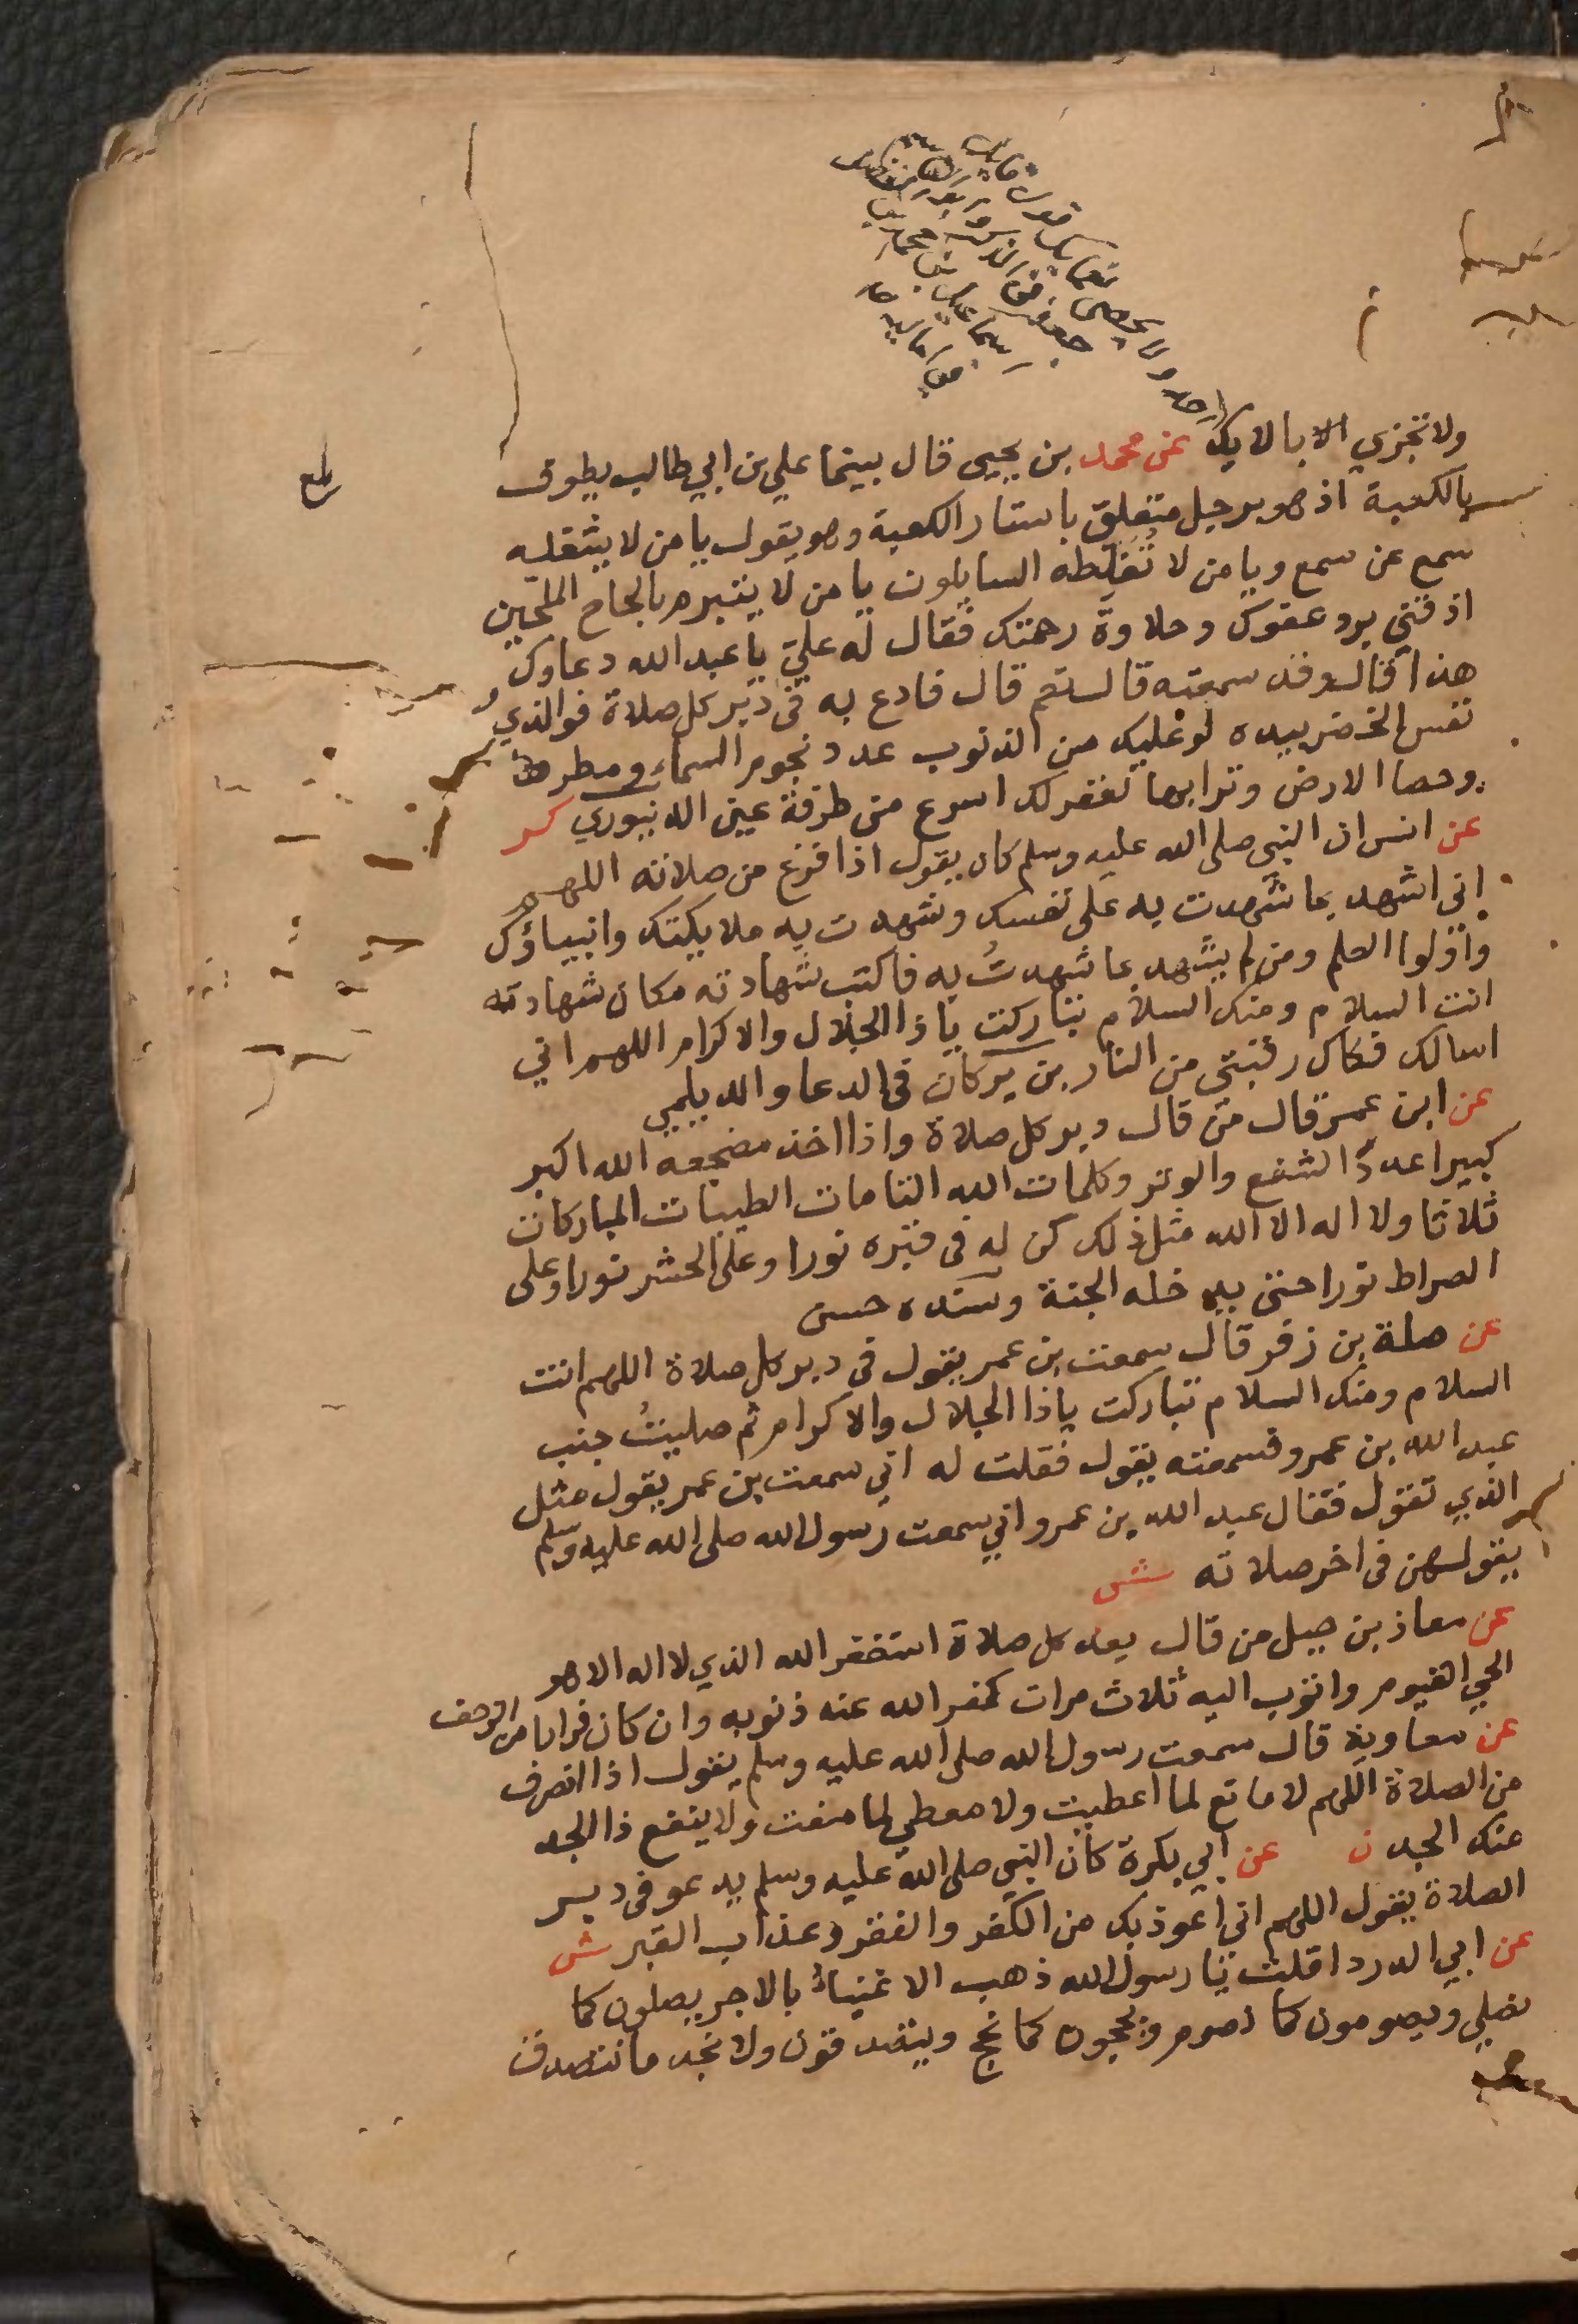 ولا تجزي الا بالايك عن محمد بن يحيى قال بينما علي بن ابي طالب يطوف
بالكعبة اذ هو برجل متعلق باستار الكعبة وهو يقول يا من لا يشغله
سمع عن سمع ويا من لا تُغَلّطه السايلون يا من لا يتبرم بالحاح الملحّين
اذقني برد عفوك وحلاوة رحمتك فقال له عليّ يا عبد الله دعاوك
هذا قال وقد سمعته قال نعم قال فادع به في دُبر كل صلاة فوالذي
نفس الخضر بيده لو عليك من الذنوب عدد نجوم السماء ومطرها
وحصا الارض وترابها لغفر لك اسرع من طرفة عين الدينوري كر
عن انس ان النبي صلى الله عليه وسلم كان يقول اذا فرغ من صلاته اللهم
اني اشهد بما شهدت به على نفسك وشهدت به ملايكتك وانبياؤك
واولوا العلم ومن لم يشهد بما شهدتُ به فاكتب شهادته مكان شهادته
انت السلام ومنك السلام تباركت يا ذا الجلال والاكرام اللهم اني
اسالك فكاك رقبتي من النار بن بركان في الدعا والديلمي
عن ابن عمر قال من قال دبر كل صلاة واذا اخذ مضجعه الله اكبر
كبيرا عددَ الشفع والوتر وكلمات الله التامات الطيبات المباركات
ثلاثا ولا اله الا الله مثل ذلك كن له في قبره نورا وعلى الحشر نورا وعلى
الصراط نورا حتى يدخله الجنة وسنده حسن
عن صلة بن زفر قال سمعت بن عمر يقول في دبر كل صلاة اللهم انت
السلام ومنك السلام تباركت يا ذا الجلال والاكرام ثم صليتُ جنب
عبد الله بن عمرو فسمعته يقول فقلت له اني سمعت بن عمر يقول مثل
الذي تقول فقال عبد الله بن عمرو اني سمعت رسول الله صلى الله عليه وسلم
يقولهن في اخر صلاته ش
عن معاذ بن جبل من قال بعد كل صلاة استغفر الله الذي لا اله الا هو
الحي القيوم واتوب اليه ثلاث مرات كفر الله عنه ذنوبه وان كان فرارا من الزحف
عن معاوية قال سمعت رسول الله صلى الله عليه وسلم يقول اذا انصرف
من الصلاة اللهم لا مانع لما اعطيت ولا معطي لما منعت ولا ينفع ذا الجد
منك الجد ن عن ابي بكرة كان النبي صلى الله عليه وسلم يدعو في دبر
الصلاة يقول اللهم اني اعوذ بك من الكفر والفقر وعذاب القبر ش
عن ابي الدرداء قلت يا رسول الله ذهب الاغنياءُ بالاجر يصلون كما
نصلي ويصومون كما نصوم ويحجون كما نحج ويتصدقون ولا نجد ما نتصدق